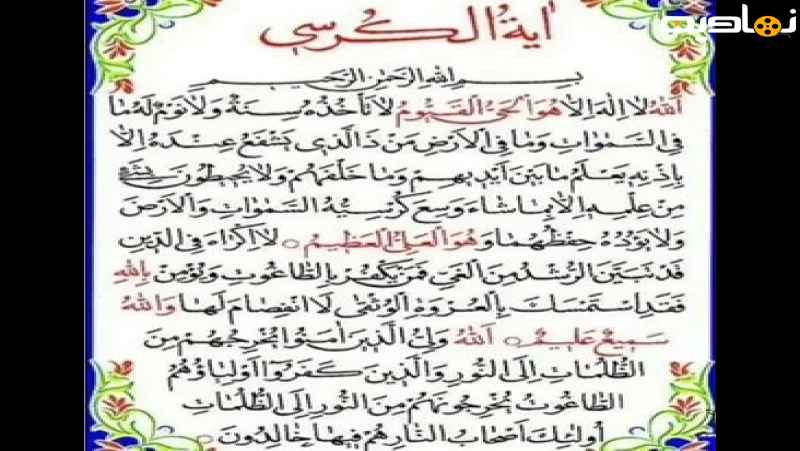 نماضیح
اٰيةُ الكُرسي
بِسْمِ اللهِ الرَّحْمٰنِ الرَّحيمِ
اَللهُ لا اِلٰهَ اِلاّ هُوَ الحَيُّ القَيُّومُ لا تَأخُذُهُ سِنَةٌ وَلا نَومٌ لَهُ مَا
فِي السَّمٰوَاتِ وَمَا فِي الاَرْضِ مَن ذَا الَّذي يَشْفَعُ عِنْدَهُ اِلاّ
بِاِذنِهِ يَعْلَمُ مَا بَيْنَ اَيْديهِمْ وَمَا خَلْفَهُمْ وَلا يُحيطُونَ بِشَيءٍ
مِن عِلْمِهِ اِلاّ بِمَا شَاءَ وَسِعَ كُرسِيُّهُ السَّمٰوَاتِ وَالاَرْضَ
وَلا يَؤُدُهُ حِفْظُهُمَا وَهُوَ العَليُّ العَظيمُ لا اِكْرَاهَ فِي الدّينِ
قَد تَبَيَّنَ الرُّشْدُ مِنَ الغَيِّ فَمَن يَكْفُر بِالطَّاغُوتِ وَيُؤمِن بِاللهِ
فَقَدِ اسْتَمْسَكَ بِالعُروَةِ الوُثْقىٰ لا انْفِصَامَ لَهَا وَاللهُ
سَميعٌ عَليمٌ اَللهُ وَلِيُّ الَّذينَ اٰمَنُوا يُخْرِجُهُمْ مِنَ
الظُّلُمَاتِ اِلَى النُّورِ وَالَّذينَ كَفَرُوٓا اَوْلِيَاؤُهُمُ
الطَّاغُوتُ يُخْرِجُونَهُمْ مِنَ النُّورِ اِلَى الظُّلُمَاتِ
اُولٰئِكَ اَصْحَابُ النَّارِ هُمْ فيهَا خَالِدُونَ